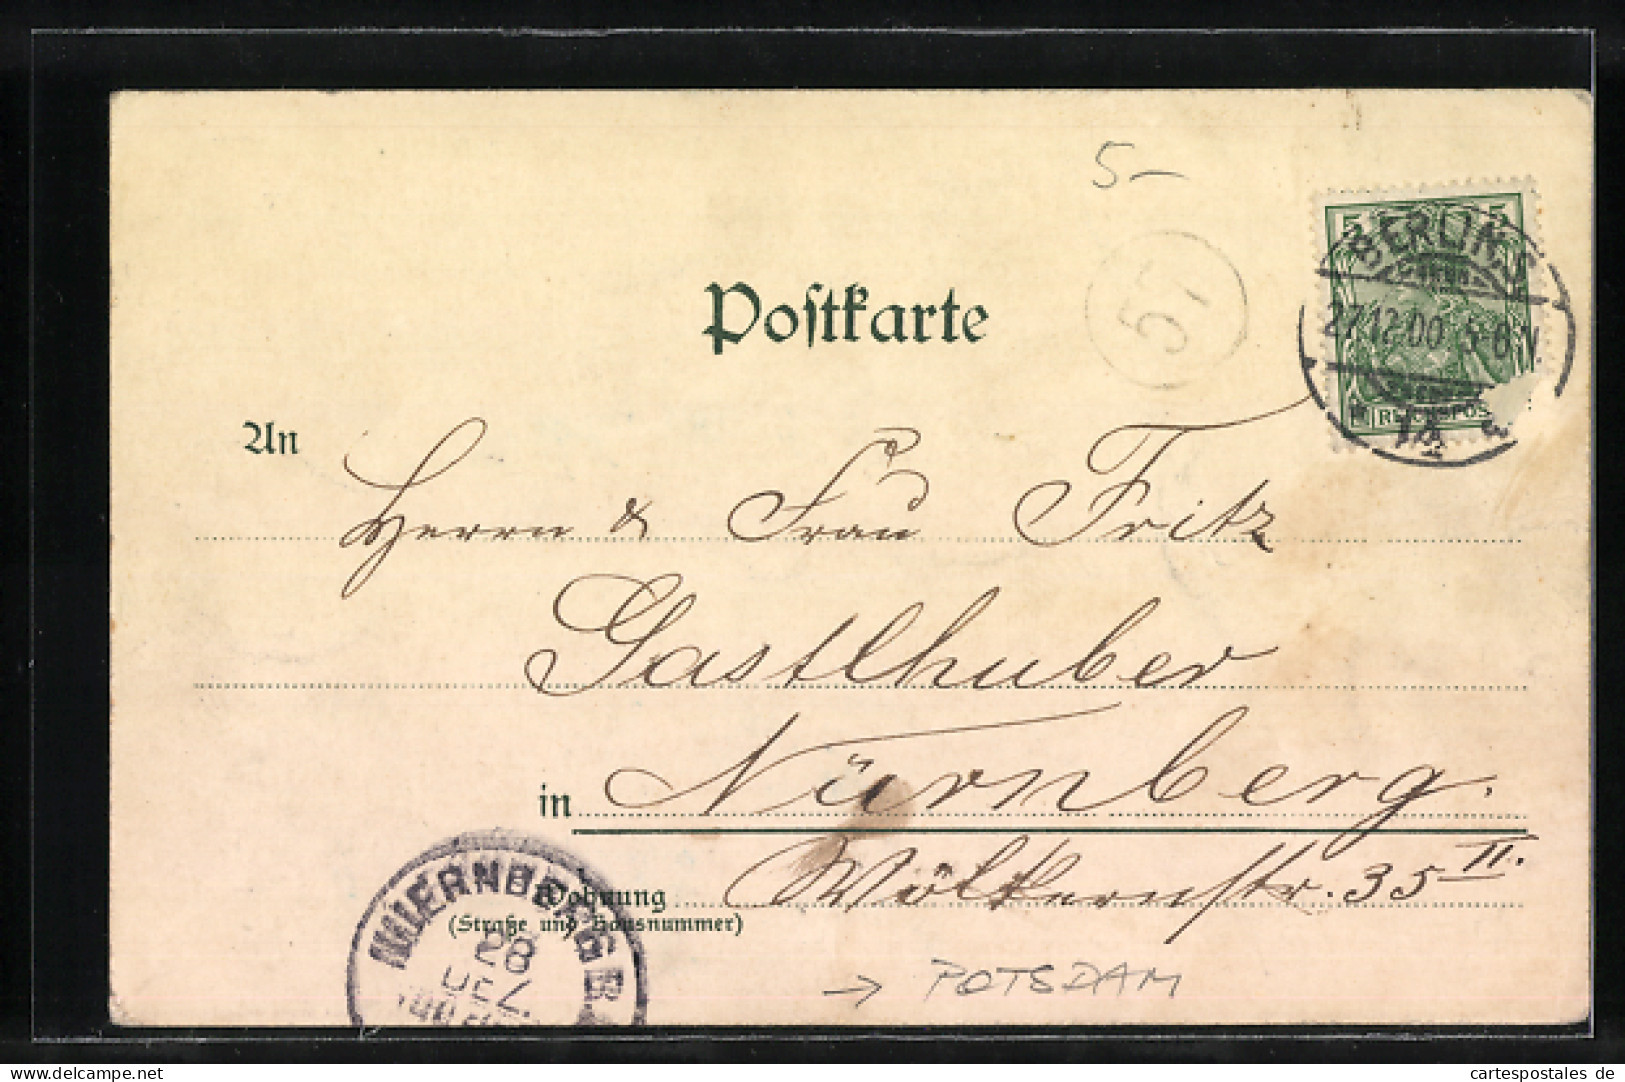 5-
57
5 5
BERLIN.S.
27.12.00. 5-6N.
REICHSPOS
14
Postkarte
An
Herrn & Frau Fritz
Gastlhuber
in Nürnberg.
Wohnung Wölkernstr. 35 II.
(Straße und Hausnummer)
NUERNBERG B
28
DEZ
→ POTSDAM
cartespostales de